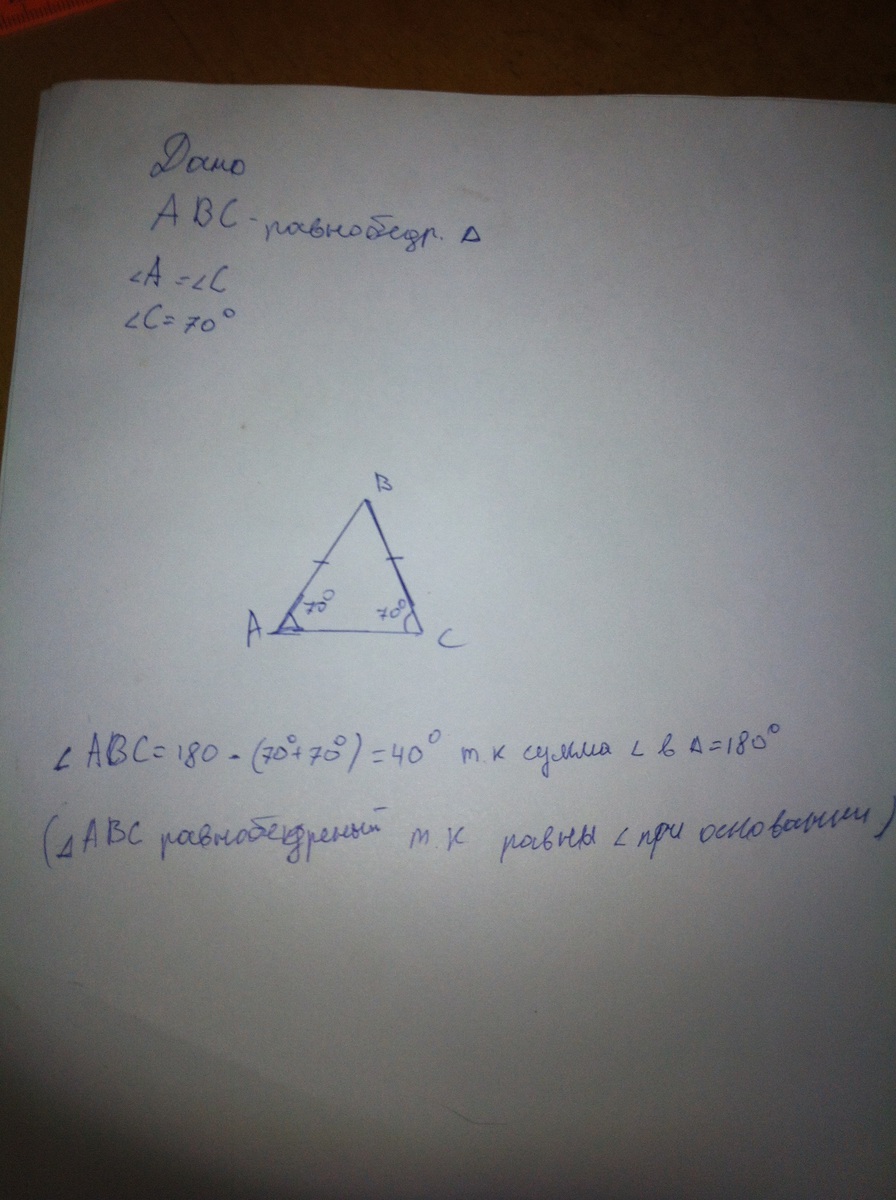 Дано
ABC - равнобедр. Δ
∠A = ∠C
∠C = 70°
B
70°
70°
A
C
∠ABC = 180 - (70° + 70°) = 40° т.к сумма ∠ в Δ = 180°
(ΔABC равнобедреный т.к равны ∠ при основании)